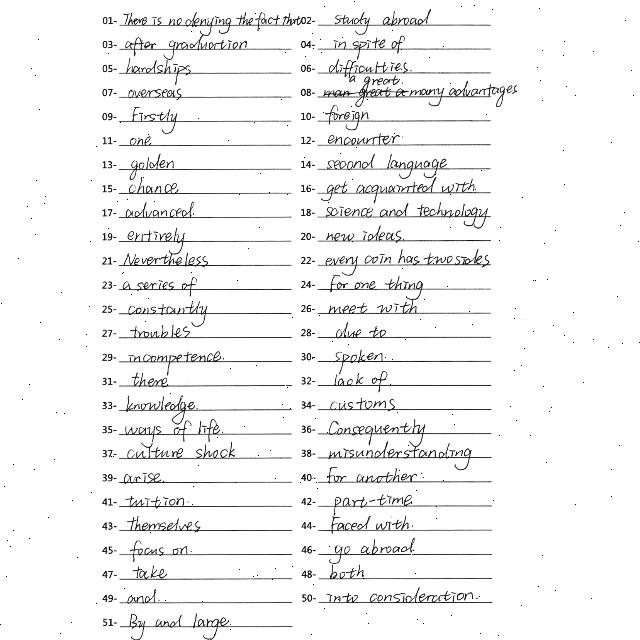 01- There is no denying the fact that 02- study abroad
03- after graduation 04- in spite of
05- hardships 06- difficulties.
07- overseas 08- a great many advantages
09- Firstly 10- foreign
11- one 12- encounter
13- golden 14- second language
15- chance 16- get acquainted with
17- advanced 18- science and technology
19- entirely 20- new ideas.
21- Nevertheless 22- every coin has two sides
23- a series of 24- For one thing
25- constantly 26- meet with
27- troubles 28- due to
29- incompetence. 30- spoken
31- there 32- lack of
33- knowledge. 34- customs
35- ways of life. 36- Consequently
37- culture shock 38- misunderstanding
39- arise. 40- For another
41- tuition 42- part-time
43- themselves 44- Faced with
45- focus on 46- go abroad
47- take 48- both
49- and 50- into consideration.
51- By and large